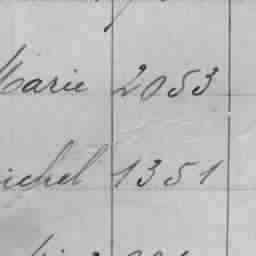 Marie 2053
ichel 1351